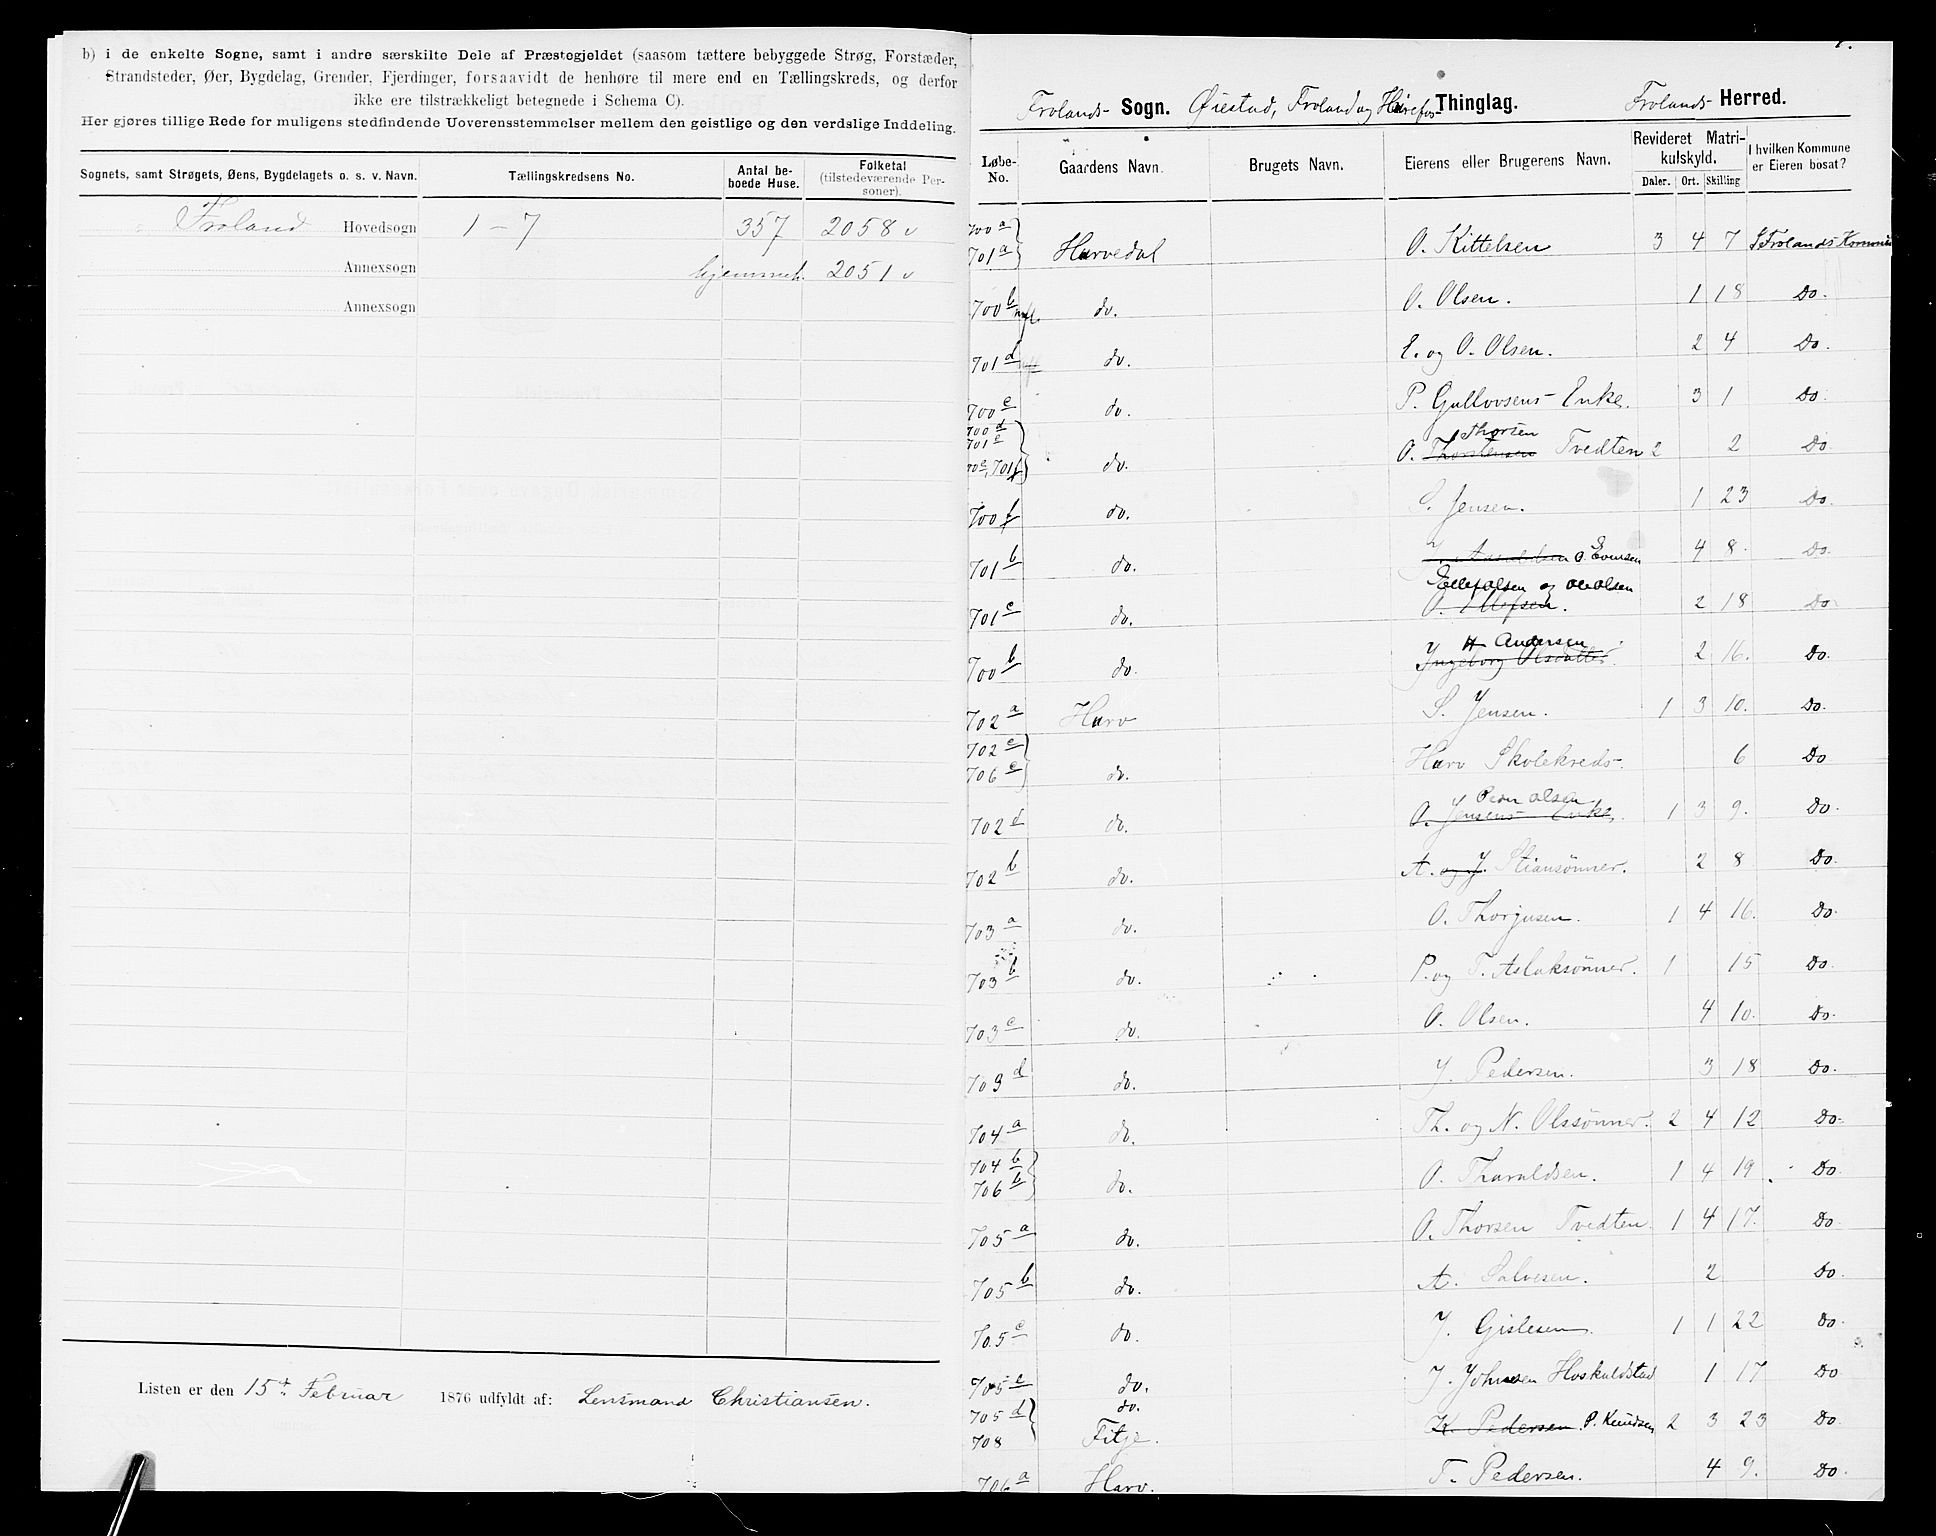 b) i de enkelte Sogne, samt i andre særskilte Dele af Præstegjeldet (saasom tættere bebyggede Strøg, Forstæder,
Strandsteder, Øer, Bygdelag, Grender, Fjerdinger, forsaavidt de henhøre til mere end en Tællingskreds, og derfor
ikke ere tilstrækkeligt betegnede i Schema C).
Her gjøres tillige Rede for muligens stedfindende Uoverensstemmelser mellem den geistlige og den verdslige Inddeling.
Sognets, samt Strøgets, Øens, Bygdelagets o. s. v. Navn. Tællingskredsens No. Antal beboede Huse. Folketal (tilstedeværende Personer).
Froland Hovedsogn 1 - 7 357 2058
Annexsogn hjemmeh. 2051
Annexsogn
Listen er den 15de Februar 1876 udfyldt af: Lensmand Christiansen.
Frolands Sogn. Øiestad, Froland og Herefos Thinglag. Frolands Herred.
Løbe-No. Gaardens Navn. Brugets Navn. Eierens eller Brugerens Navn. Revideret Matrikulskyld. Daler. Ort. Skilling I hvilken Kommune er Eieren bosat?
700a 701a Harvedal O. Kittelsen 3 4 7 Frolands Kommune
700b do. O. Olsen. 1 18 Do.
701d do. E. og O. Olsen. 2 4 Do.
700c do. P. Gullovsens Enke. 3 1 Do.
700d 701e 700e, 701f do. O. Thorstensen Thorsen Tvedten 2 2 Do
700f do. S. Jensen. 1 23 Do
701b do. O. Evensen 4 8 Do
701c do. O. Ellefsen. Ellef Olsen og Ole Olsen 2 18 Do
700b do. Ingeborg Olsdatter. H Andersen 2 16. Do.
702a Harv S. Jensen. 1 3 10. Do.
702c 706c do. Harv Skolekreds. 6 Do
702d do. O. Jensens Enke, Peder Olsen 1 3 9. Do.
702b do. A. og J. Stiansønner. 2 8 Do.
703a do. O. Thorjusen. 1 4 16. Do.
703b do. P. og T. Aslaksønner. 1 15 Do.
703c do. O. Olsen. 4 10. Do.
703d do. J. Pedersen. 3 18 Do.
704a do. Th. og N. Olssønner. 2 4 12 Do.
704b 706b do. O. Tharaldsen. 1 4 19 Do
705a do. O. Thorsen Tvedten 1 4 17. Do
705b do. A. Salvesen. 2 Do
705c do. J. Gislesen. 1 1 22 Do.
705e do. J. Johnsen Hoskuldstad 1 17 Do
705d do.
708 Fitje. K. Pedersen. P. Knudsen 2 3 23 Do
706a Harv. T. Pedersen. 4 9. Do